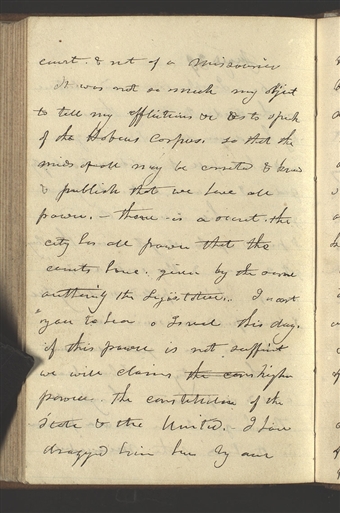 court. & not of a Missourian
It was not so much my object
to tell my afflictions &c as to speak
of the Habeus Corpus. so that the
minds of all may be corrected & know
& publish that we have all
power. - there is a court. the
city has all power that the
courts have. given by the same
authority the Legislature. I want
you to hear o Israel this day.
if this power is not sufficient
we will claim the cons higher
power. the constitution of the
State & the United. - I have
dragged him here by our